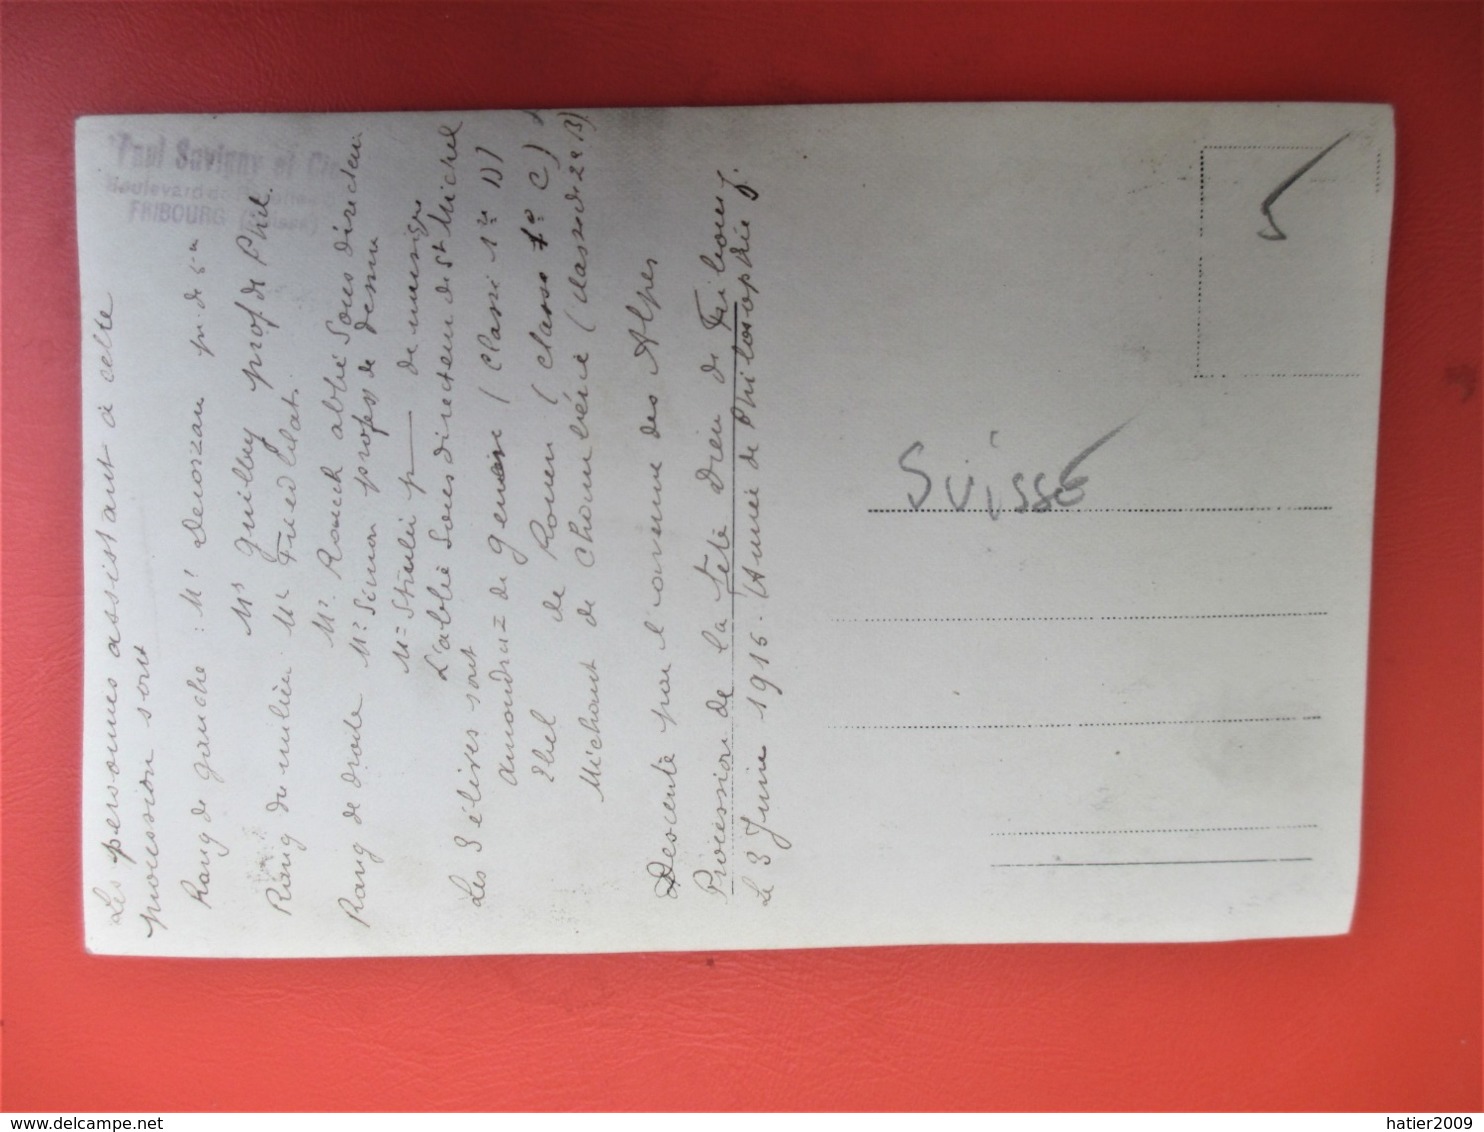 Paul Savigny et Cie
Boulevard de
FRIBOURG (Suisse)
Les personnes assistant à cette
procession sont
Rang de gauche : Mr pr. de
Mr Guilley prof de Phil.
Rang du milieu Mr Friedblat.
Mr. abbé Sous directeur
Rang de droite Mr Simon profess de dessin
Mr p — de musique
L'abbé Sous directeur de St Michel
Les 3 élèves sont
de (Classe 1re D)
Ebel de Rouen (Classe 1e C)
Michaut de (Classe de 2e B)
Descente par l'avenue des Alpes
Procession de la Fête Dieu de Fribourg.
Le 3 Juin 1915. (Année de Philosophie
SUISSE
5
delcampe.net
hatier2009